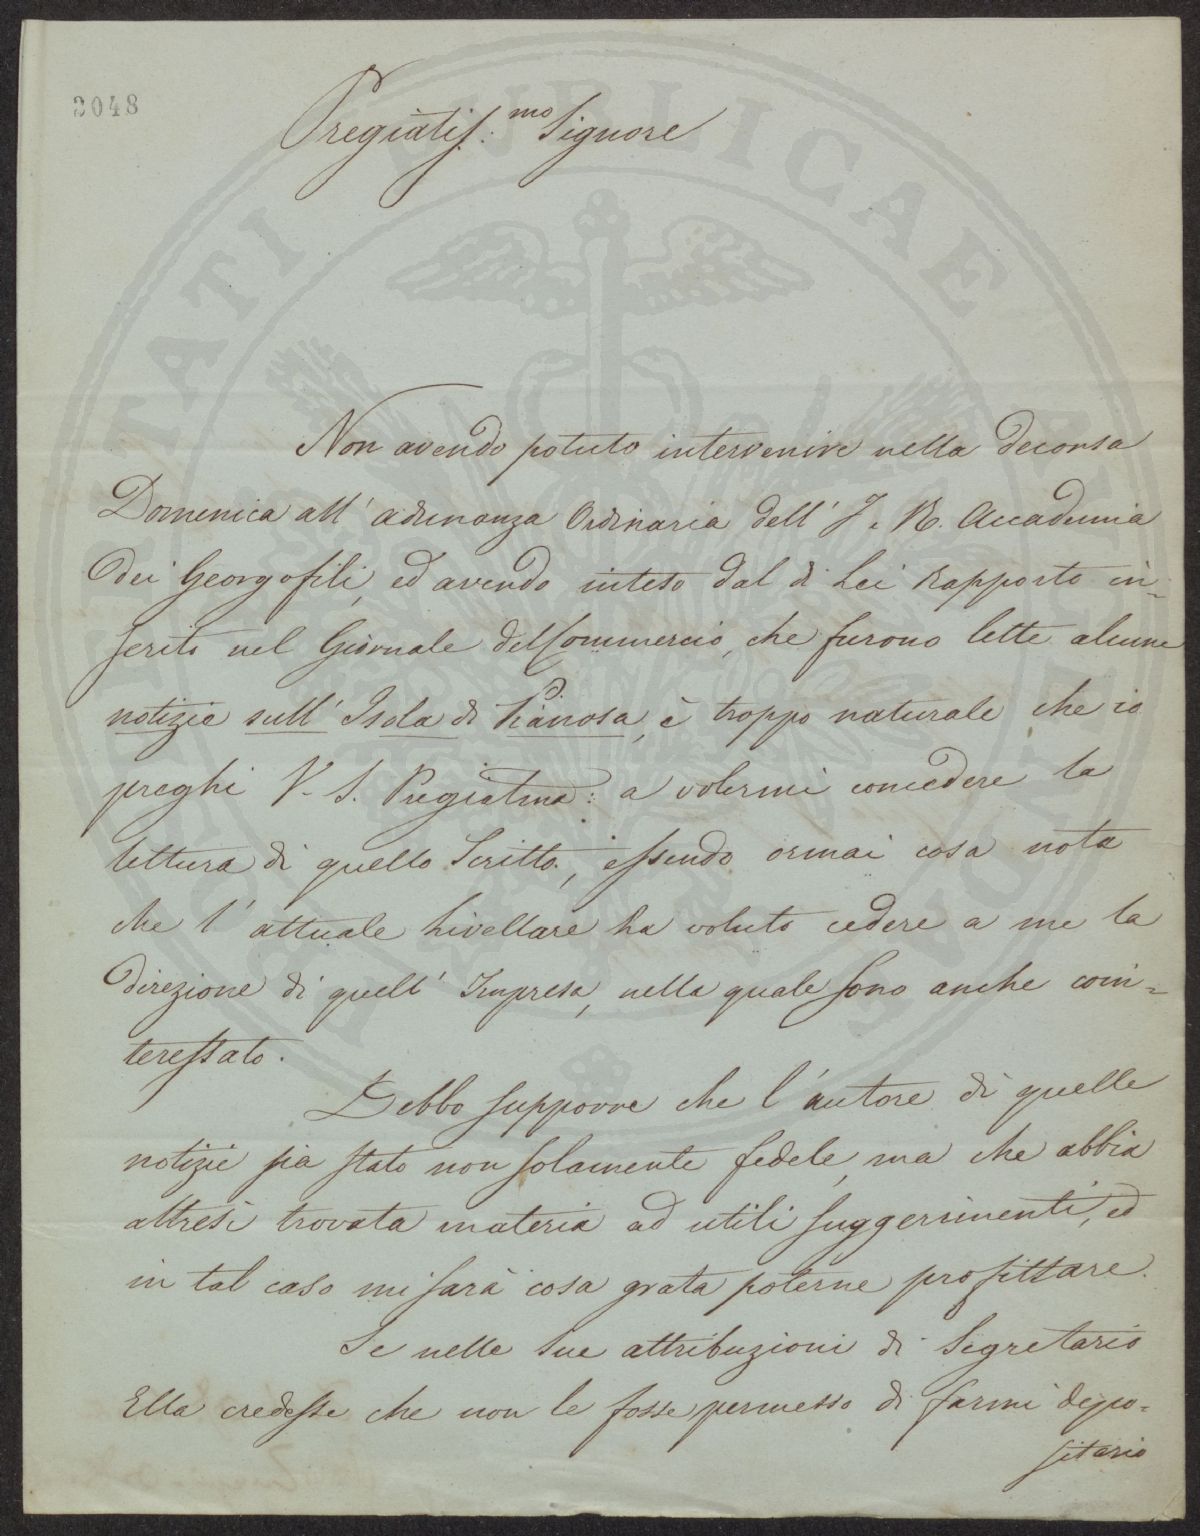 2048
Pregiatis.mo Signore
Non avendo potuto intervenire nella decorsa
Domenica all' adunanza Ordinaria dell' I. R. Accademia
dei Georgofili, ed avendo inteso dal di Lei Rapporto in=
serito nel Giornale del Commercio, che furono lette alcune
notizie sull' Isola di Pianosa, è troppo naturale che io
preghi V. S. Pregiatma: a volermi concedere la
lettura di quello Scritto, essendo ormai cosa nota
che l' attuale Livellare ha voluto cedere a me la
direzione di quell' Impresa, nella quale sono anche coin=
teressato.
Debbo supporre che l' autore di quelle
notizie sia stato non solamente fedele, ma che abbia
altresì trovata materia ad utili suggerimenti, ed
in tal caso mi sarà cosa grata poterne profittare.
Se nelle Sue attribuzioni di Segretario
Ella credesse che non le fosse permesso di farmi depo=
sitario